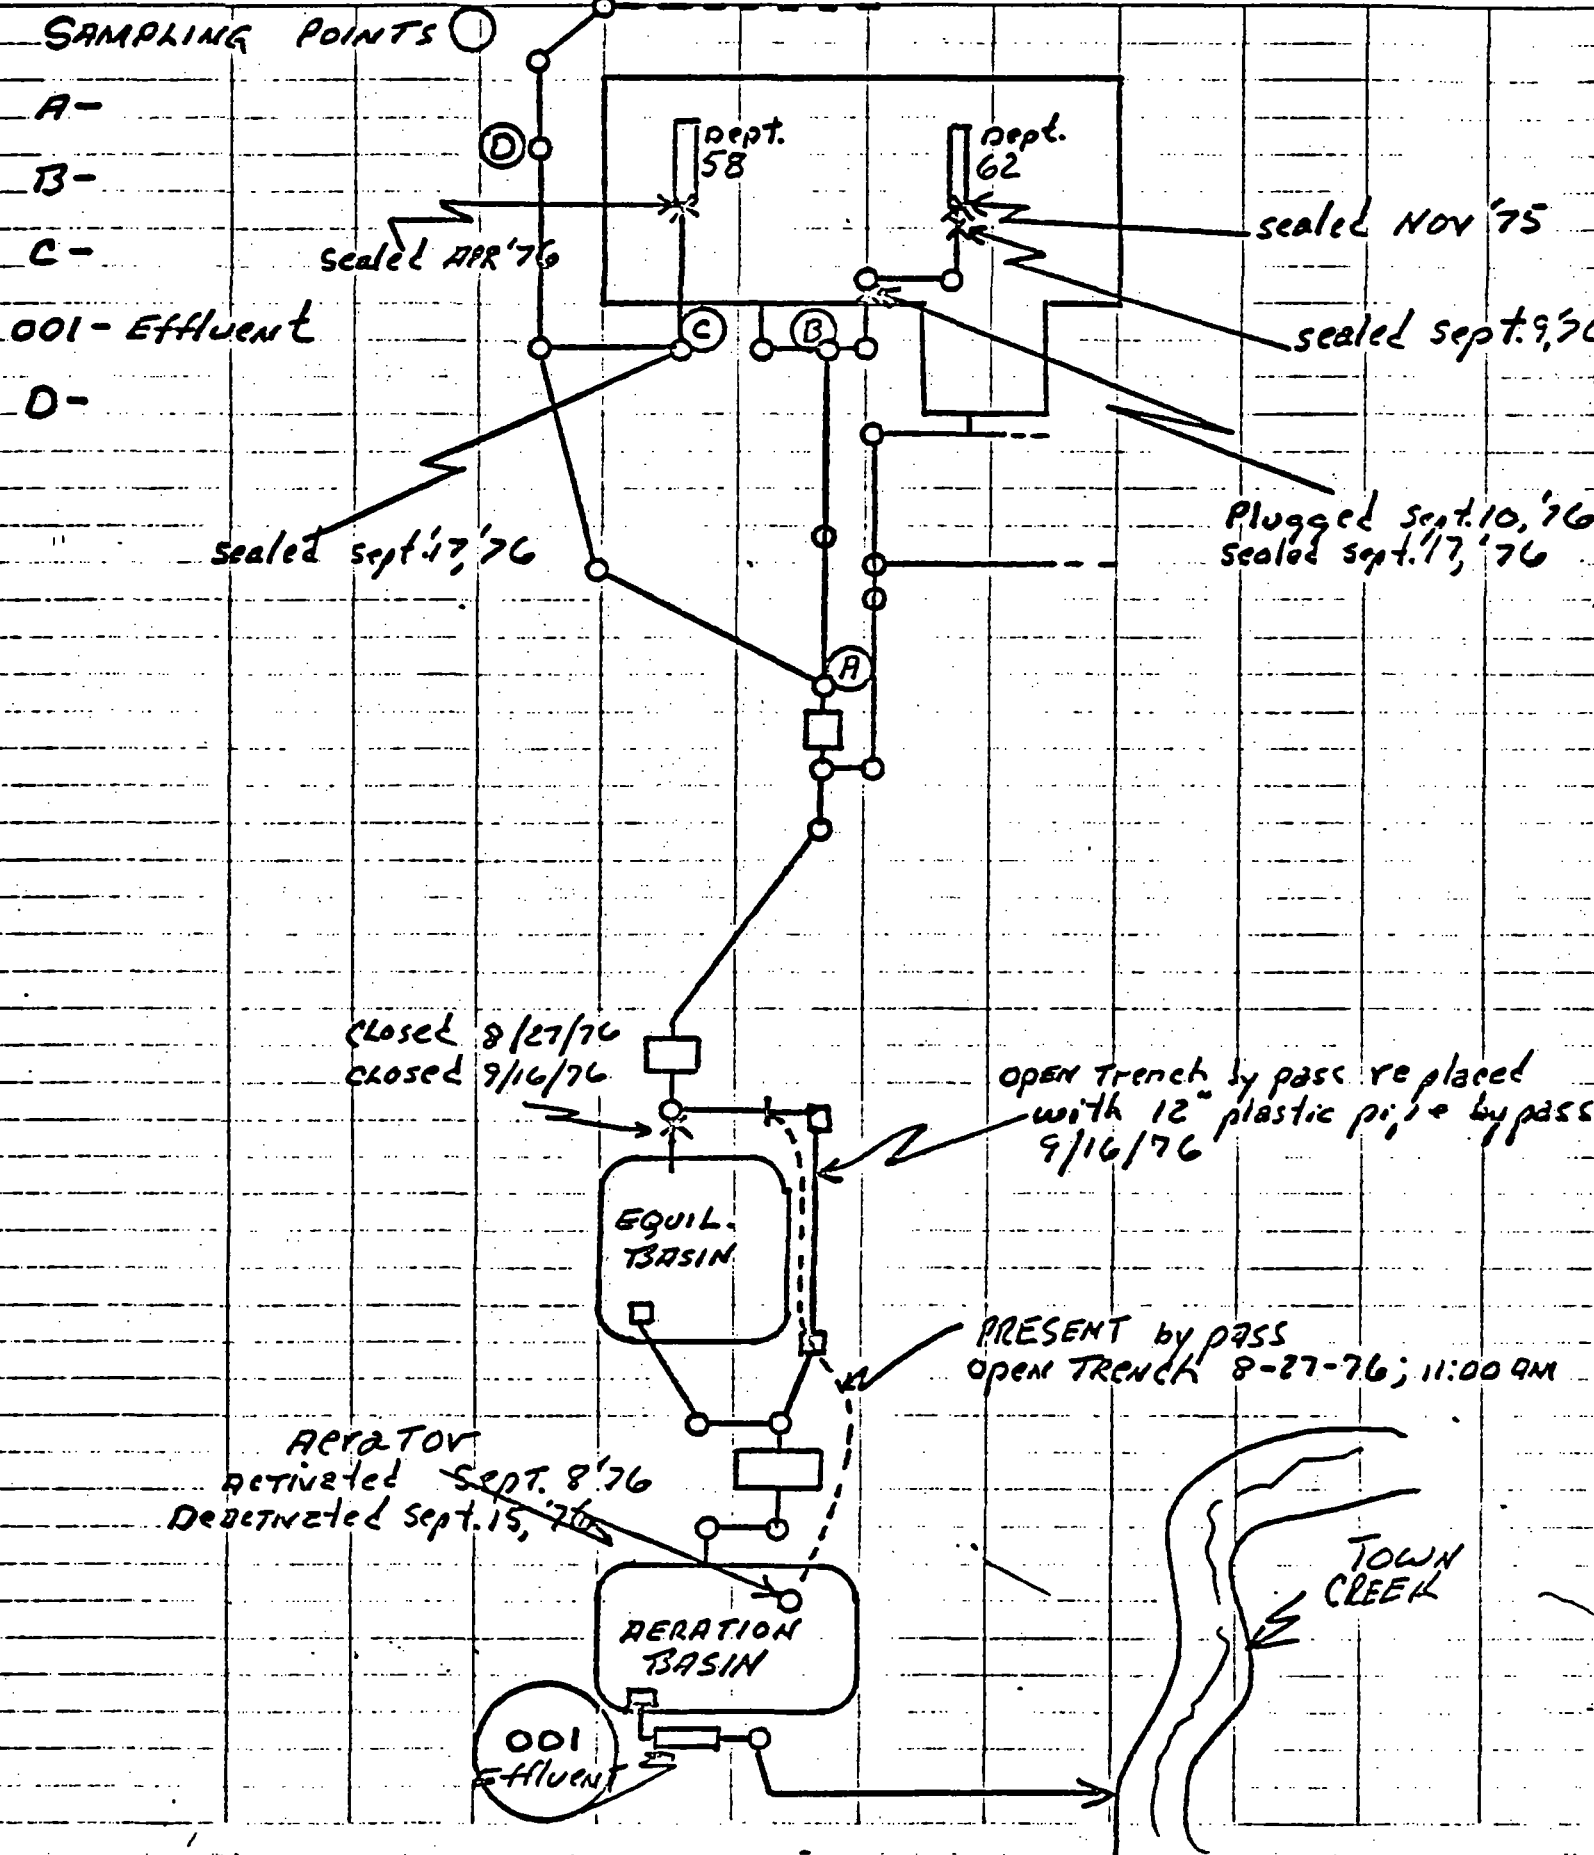 SAMPLING POINTS
A-
B-
C-
001- Effluent
D-
D
Dept.
58
Dept.
62
sealed APR '76
sealed NOV '75
sealed Sept. 9, '76
C
B
sealed Sept. 17, '76
Plugged Sept. 10, '76
sealed Sept. 17, '76
A
CLosed 8/27/76
CLosed 9/16/76
OPEN Trench by pass replaced
with 12" plastic pipe bypass
9/16/76
EQUIL.
BASIN
PRESENT by pass
Open TRENCH 8-27-76; 11:00 AM
AeraTor
Activated Sept. 8 '76
Deactivated Sept. 15, '76
TOWN
CREEK
AERATION
BASIN
001
Effluent